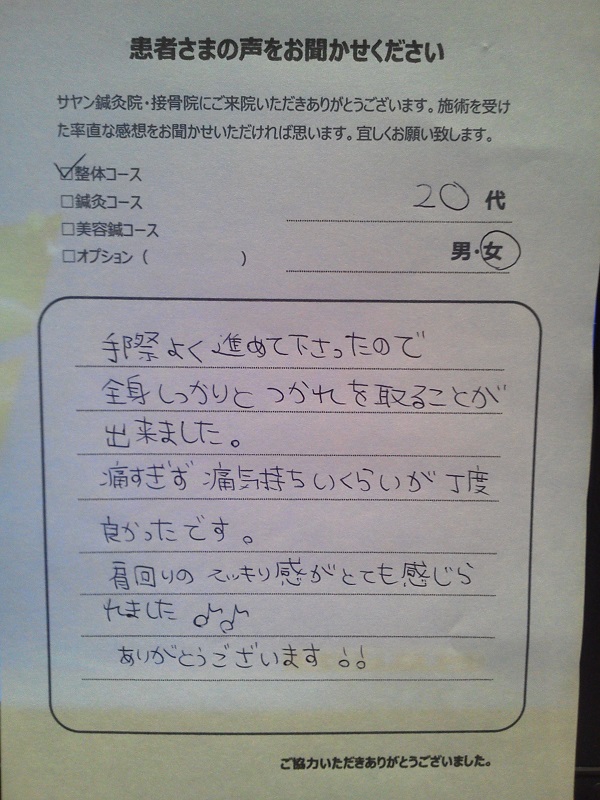 患者さまの声をお聞かせください
サヤン鍼灸院・接骨院にご来院いただきありがとうございます。施術を受け
た率直な感想をお聞かせいただければ思います。宜しくお願い致します。
☑整体コース
□鍼灸コース
□美容鍼コース
□オプション（　　　　　　）
20代
男・女
手際よく進めて下さったので
全身しっかりとつかれを取ることが
出来ました。
痛すぎず痛気持ちいくらいが丁度
良かったです。
肩回りのスッキリ感がとても感じら
れました♪♪
ありがとうございます!!
ご協力いただきありがとうございました。